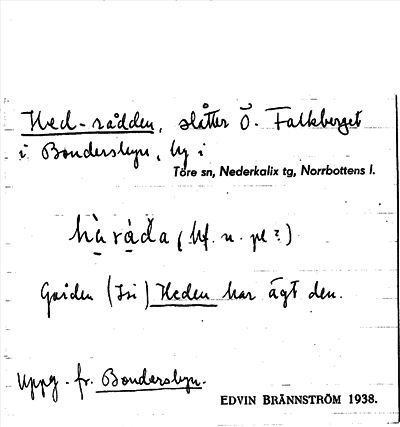 Hed-rådden, slåtter Ö. Falkberget
i Bondersbyn, by i
Töre sn, Nederkalix tg, Norrbottens l.
hà ràda (bf. n. pl?)
Gården (Isi) Heden har ägt den.
Uppg. fr. Bondersbyn.
EDVIN BRÄNNSTRÖM 1938.